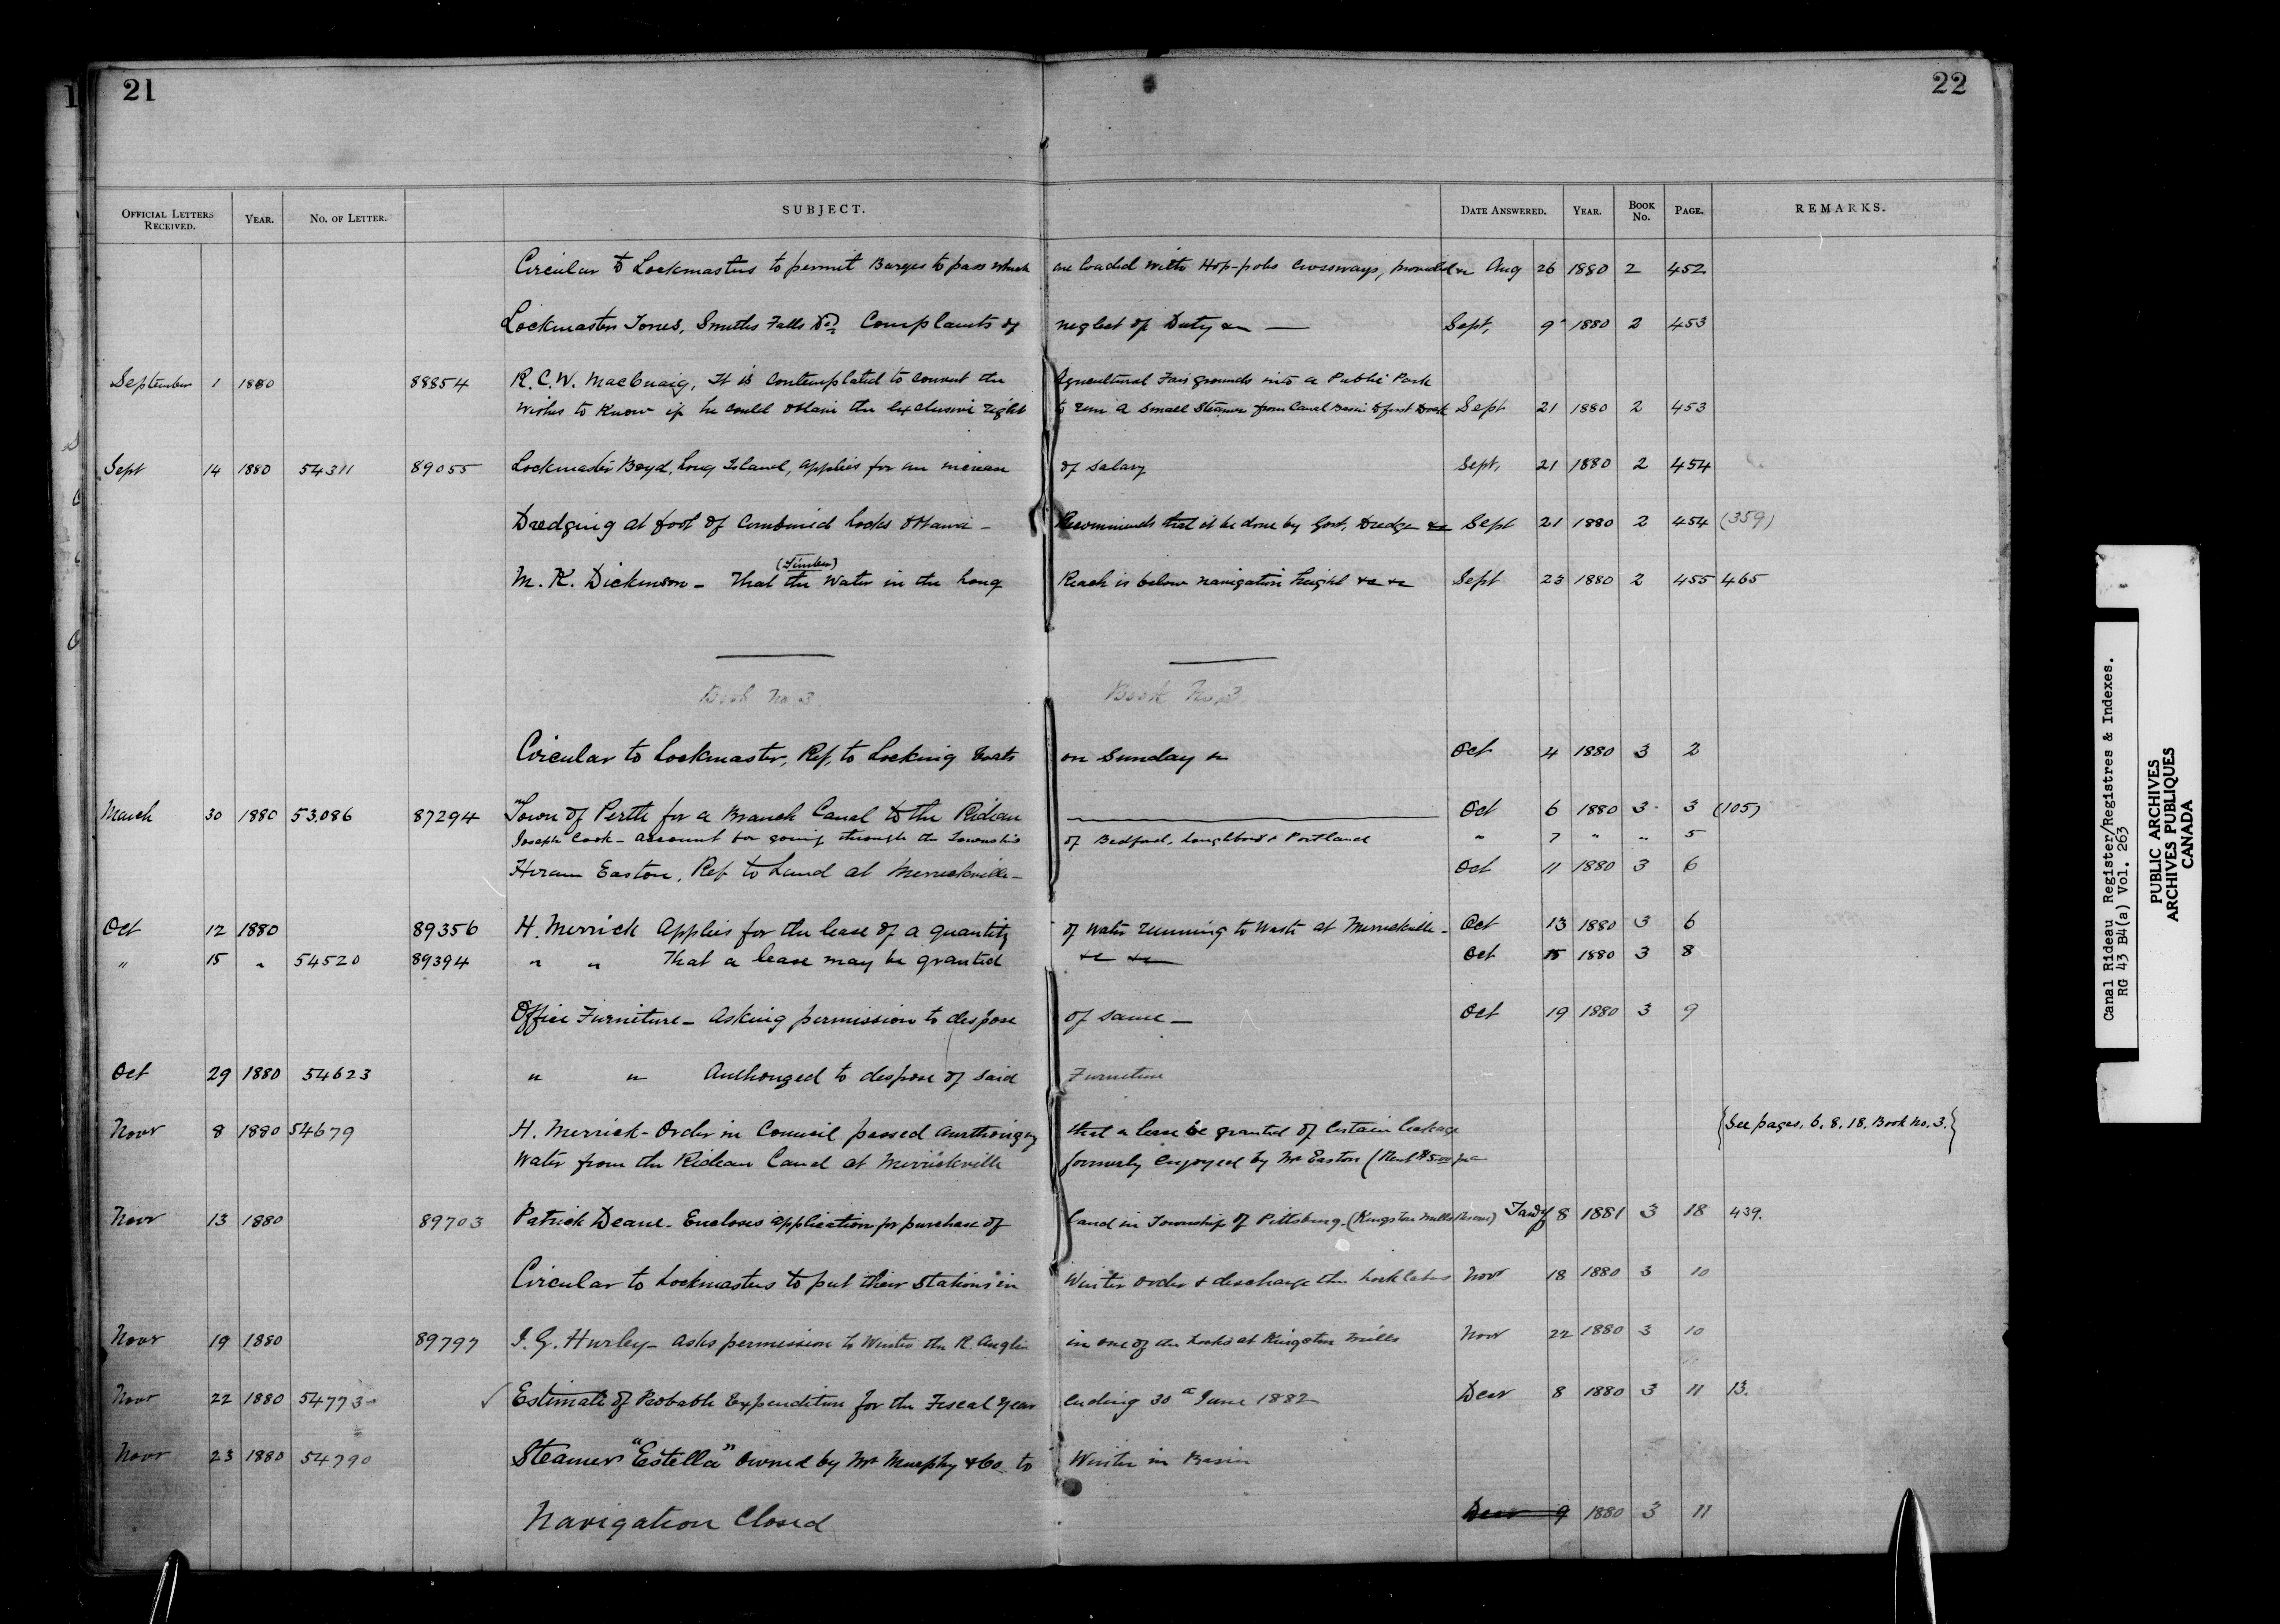 21
22
OFFICIAL LETTERS RECEIVED. YEAR. NO. OF LETTER. SUBJECT. DATE ANSWERED. YEAR. BOOK No. PAGE. REMARKS.
Circular to Lockmasters to permit Barges to pass which are loaded with Hop-poles crossways, provided &c Aug 26 1880 2 452
Lockmaster Jones, Smiths Falls Complaints of neglect of Duty &c — Sept, 9 1880 2 453
September 1 1880 88854 R. C. W. MacCuaig, It is contemplated to convert the Agricultural Fair grounds into a Public Park
Wishes to know if he could obtain the exclusive right to run a small Steamer from Canal Basin to first Dock Sept 21 1880 2 453
Sept 14 1880 54311 89055 Lockmaster Boyd, Long Island, applies for an increase of salary Sept, 21 1880 2 454
Dredging at foot of Combined Locks Ottawa - Recommends that it be done by Govt. Dredge &c Sept 21 1880 2 454 (359)
(Timber)
M. K. Dickinson - That the Water in the Long Reach is below navigation height &c &c Sept 23 1880 2 455 465
Book No 3. Book No. 3
Circular to Lockmaster, Ref. to Locking Boats on Sunday &c Oct 4 1880 3 2
March 30 1880 53,086 87294 Town of Perth for a Branch Canal to the Rideau Oct 6 1880 3 3 (105)
Joseph Cook - account for going through the Townships of Bedford, Loughboro & Portland " 7 " " 5
Hiram Easton, Ref to Land at Merrickville - Oct 11 1880 3 6
Oct 12 1880 89356 H. Merrick Applies for the lease of a quantity of Water running to Waste at Merrickville - Oct 13 1880 3 6
" 15 " 54520 89394 " " That a lease may be granted &c &c Oct 15 1880 3 8
Office Furniture - Asking permission to dispose of same - Oct 19 1880 3 9
Oct 29 1880 54623 " " Authorized to dispose of said Furniture
Novr 8 1880 54679 H. Merrick - Order in Council passed authorizing that a lease be granted of certain leakage {See pages. 6. 8. 18. Book No. 3.}
Water from the Rideau Canal at Merrickville formerly enjoyed by Mr Easton (Rent $5.00 p a
Novr 13 1880 89703 Patrick Deane. Encloses application for purchase of land in Township of Pittsburg. (Kingston Mills Reserve) Jany 8 1881 3 18 439.
Circular to Lockmasters to put their Stations in Winter order & discharge the Locklabor Novr 18 1880 3 10
Novr 19 1880 89797 J. G. Hurley - asks permission to Winter the R. Anglin in one of the Locks at Kingston Mills Novr 22 1880 3 10
Novr 22 1880 54773 Estimate of Probable Expenditure for the Fiscal year ending 30th June 1882 Decr 8 1880 3 11 13.
Novr 23 1880 54790 Steamer "Estella" owned by Mr Murphy & Co. to Winter in Basin
Navigation Closed Decr 9 1880 3 11
Canal Rideau Register/Registres & Indexes.
RG 43 B4(a) Vol. 263
PUBLIC ARCHIVES
ARCHIVES PUBLIQUES
CANADA